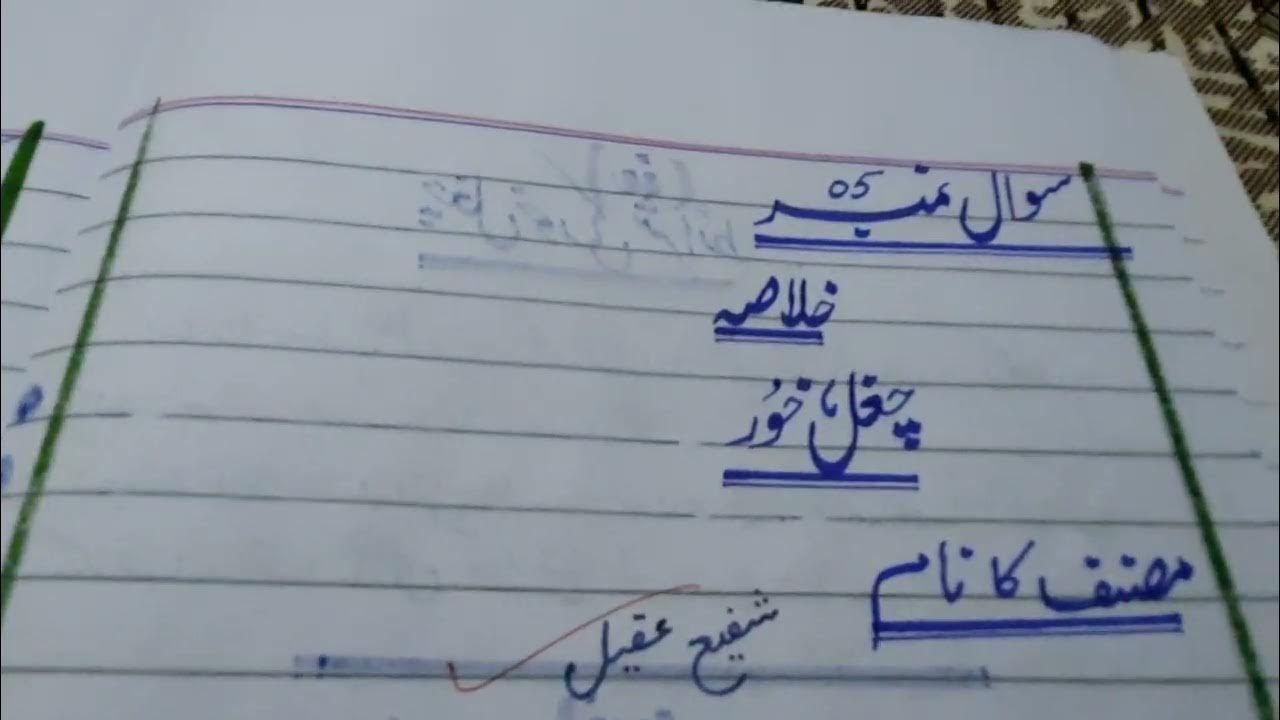 سوال نمبر 05
خلاصہ
چغل خور
مصنف کا نام
شفیع عقیل